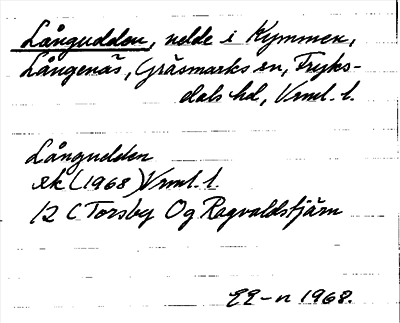 Långudden, udde i Kymmen,
Långenäs, Gräsmarks sn, Fryks-
dals hd, Vrml. l.
Långudden
ek (1968) Vrml. l.
12 C Torsby Og Ragvaldstjärn
1968.